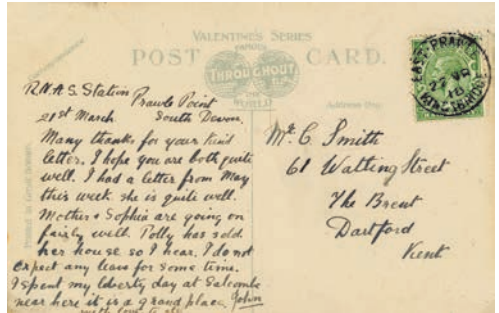 VALENTINE'S SERIES
POST CARD.
FAMOUS
THROUGHOUT
THE
WORLD
Address Only.
Printed in Great Britain.
EAST PRAWLE
27
18
KINGSBRIDGE
R.N.A.S. Station
Prawle Point
21st March. South Devon.
Many thanks for your kind
letter. I hope you are both quite
well. I had a letter from May
this week she is quite well.
Mother & Sophia are going on
fairly well. Polly has sold
her house so I hear. I do not
expect any leave for some time.
I spent my liberty day at Salcombe
near here it is a grand place. John
with love to
Mr. C. Smith
61 Watling Street
The Brent
Dartford
Kent